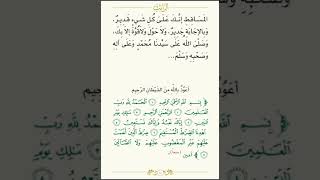 الراتب
المَسَاقِطِ إِنَّكَ عَلَىٰ كُلِّ شَيْءٍ قَدِيرٌ.
وَبِالإِجَابَةِ جَدِيرٌ. وَلَا حَوْلَ وَلَا قُوَّةَ إِلَّا بِكَ.
وَصَلَّى اللهُ عَلَى سَيِّدِنَا مُحَمَّدٍ وَعَلَى آلِهِ
وَصَحْبِهِ وَسَلَّمَ...
أَعُوْذُ بِاللَّهِ مِنَ الشَّيْطَانِ الرَّجِيْمِ
بِسْمِ اللَّهِ الرَّحْمَٰنِ الرَّحِيمِ ١ الْحَمْدُ لِلَّهِ رَبِّ
الْعَالَمِينَ ٢ الرَّحْمَٰنِ الرَّحِيمِ ٣ مَالِكِ يَوْمِ
الدِّينِ ٤ إِيَّاكَ نَعْبُدُ وَإِيَّاكَ نَسْتَعِينُ ٥
اهْدِنَا الصِّرَاطَ الْمُسْتَقِيمَ ٦ صِرَاطَ الَّذِينَ أَنْعَمْتَ
عَلَيْهِمْ غَيْرِ الْمَغْضُوبِ عَلَيْهِمْ وَلَا الضَّالِّينَ
٧ آمين